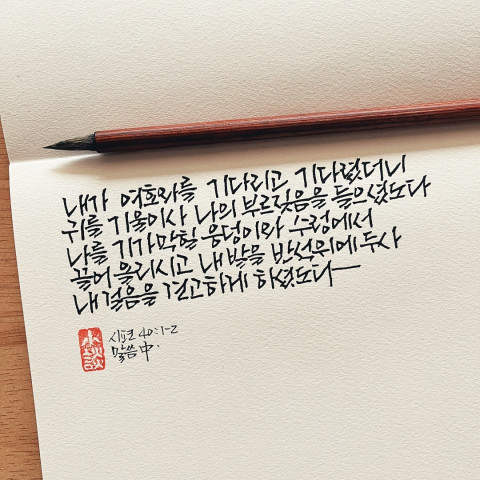 내가 여호와를 기다리고 기다렸더니
귀를 기울이사 나의 부르짖음을 들으셨도다
나를 기가막힐 웅덩이와 수렁에서
끌어 올리시고 내 발을 반석위에 두사
내 걸음을 견고하게 하셨도다
小談
시편 40:1-2
말씀 中.